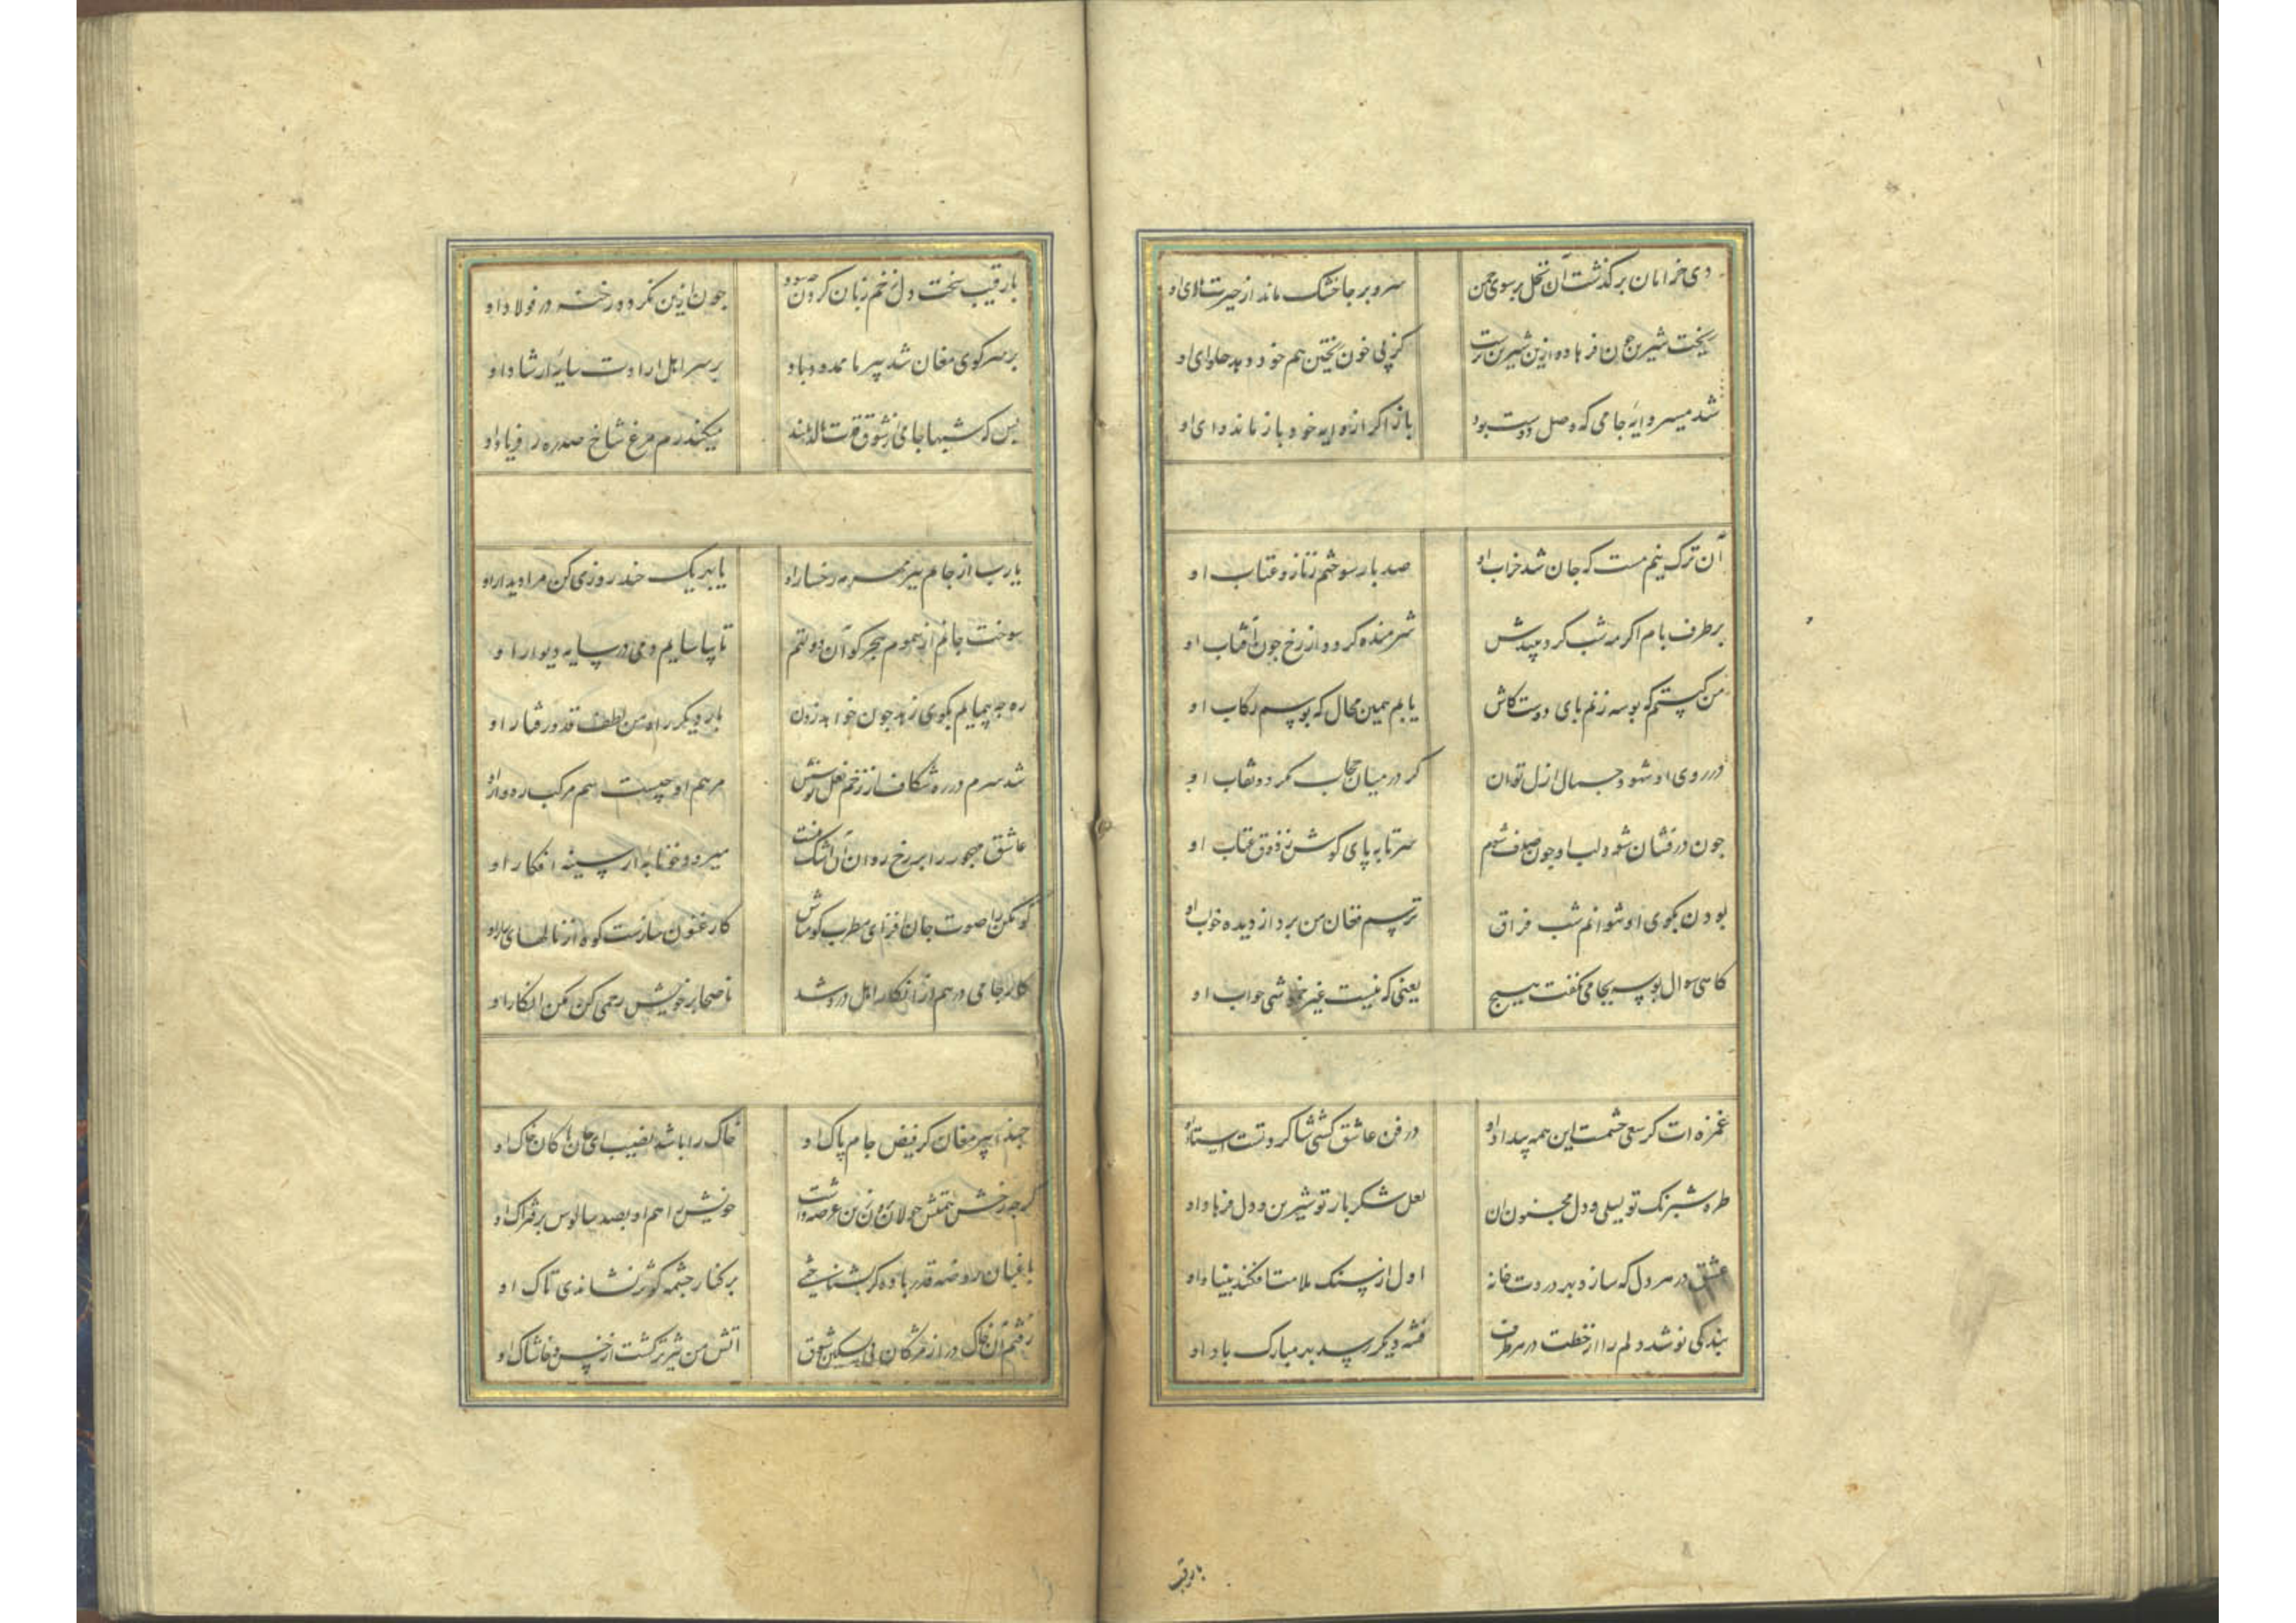 دی خرامان برکذشت آن نخل بر سوی چمن سرو بر جا خشک ماند از حیرت بالای او
ریخت شیرین خون فرهاد و ازین شیرین ترست کز پی خون ریختن هم خود دهد حلوای او
شد میسر وایهٔ جامی که وصل دوست بود باز اکر از وایه خود باز ماند وای او
آن ترک نیم مست که جان شد خراب او صد بار سوختم ز ناز و عتاب او
بر طرف بام اکر مه شب کرد بیندش شرمنده کردد از رخ چون آفتاب او
من کیستم که بوسه زنم بای دوست کاش یابم همین مجال که بوسم رکاب او
در روی او شهود جمال ازل توان کر در میان حجاب نکردد نقاب او
جون درفشان شود لب او جون صدف شوم سر تا به پای کوش ز ذوق عتاب او
بودن بکوی او نتوانم شب فراق ترسم فغان من برد از دیده خواب او
کاهی سوال بوسه بجامی نکفت هیچ یعنی که نیست غیر خموشی جواب او
غمزه ات کر سعی چشمت این همه بیداد او در فن عاشق کشی شاکرد تست استاد او
طره شبرنک تو لیلی و دل مجنون آن لعل شکر بار تو شیرین و دل فرهاد او
عشق در هر دل که سازد بهر دردت خانه اول از سنک ملامت افکند بنیاد او
بندکی نو شد دلم را از خطت در هر طرف فتنه دیکر رسد بهر مبارک باد او
با رقیب
با رقیب سخت دل زخم زبان کردن چه سود جون ازین نکردد رخنه در فولاد او
بر سر کوی مغان شد پیر ما ممدود باد بر سر اهل ارادت سایهٔ ارشاد او
بس که شبها جامی از شوق قدت نالد بلند میکند رم مرغ شاخ سدره از فریاد او
یارب از جام تیز مهر رخسار او یا بهر یک چند روزی کن مرا دیدار او
سوخت جانم از سموم هجر کو آن دولتم تا بیاسایم دمی در سایه دیوار او
ره چه پیمایم بکوی زهد جون خواهد زدن بار دیکر راه من لطف قد و رفتار او
شد سرم در ره شکاف از زخم نعل توسنش مرهم او چیست هم مرکب رهوار او
عاشق مهجور را بر رخ روان آن اشک نیست میرود خونابه از سینه افکار او
کوهکن را صوت جان افزای مطرب کو مباش کارغنون سازست کوه از نالهای زار او
کار جامی درهم از انکار اهل درد شد ناصحا بر خویش رحمی کن مکن انکار او
حبذا پیر مغان کز فیض جام پاک او خاک را باشد نصیب ای جان ما کان خاک او
کرچه رخش همتش جولان برون زین عرصه داشت خویش را هم او بصد سالوس بر فتراک او
باغبان روضه قدر باده کر بشناختی بر کنار چشمه کوثر نشاندی تاک او
رفتم آن خاک در از مژکان پی تسکین شوق آتش من تیزتر کشت از خس و خاشاک او